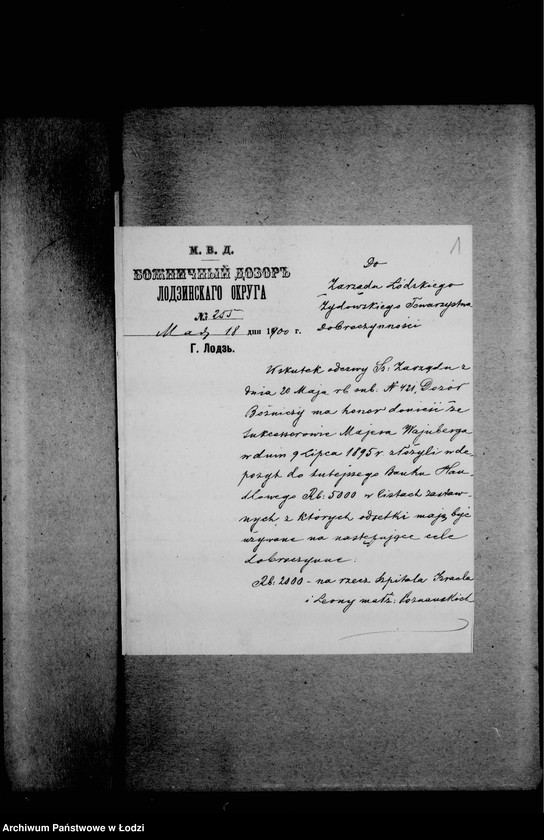 М. В. Д.
БОЖНИЧНЫЙ ДОЗОРЪ
ЛОДЗИНСКАГО ОКРУГА
№ 255
Мая 18 дня 1900 г.
Г. Лодзь.
1
Do
Zarządu Łódzkiego
Żydowskiego Towarzystwa
Dobroczynności
Wskutek odezwy Sz: Zarządu z
dnia 20 Maja rb. sub. N 421, Dozór
Bożniczy ma honor donieść że
Sukcessorowie Majera Wajnberga
w dniu 9 Lipca 1895 r. złożyli w de-
pozyt do tutejszego Banku Han-
dlowego Rb: 5000 w listach zastaw-
nych z których odsetki mają być
używane na następujące cele
dobroczynne:
Rb: 2000 - na rzecz Szpitala Izraela
i Leony małż: Poznańskich
Archiwum Państwowe w Łodzi